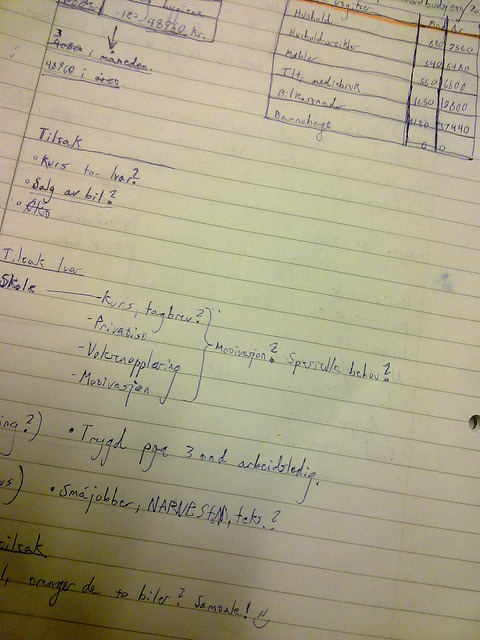 = 48960 Kr.
i måneden.
48960 i året
Husholdn
Husholdsartikler 630 7560
Møbler 540 6480
Tlf, mediebruk 550 6600
Bilkostnader 1650 19800
Barnehage 3120 37440
0 0
Tiltak
• Kurs for Ivar?
• Salg av bil?
Tiltak Ivar
Skole
- Kurs, fagbrev?
- Privatist
- Voksenopplæring
- Motivasjon
Motivasjon? Spesielle behov?
ing?) • Trygd pga 3 mnd arbeidsledig.
us) • Småjobber, NARVESEN, f.eks.?
tiltak
trenger de to biler? Samtale!